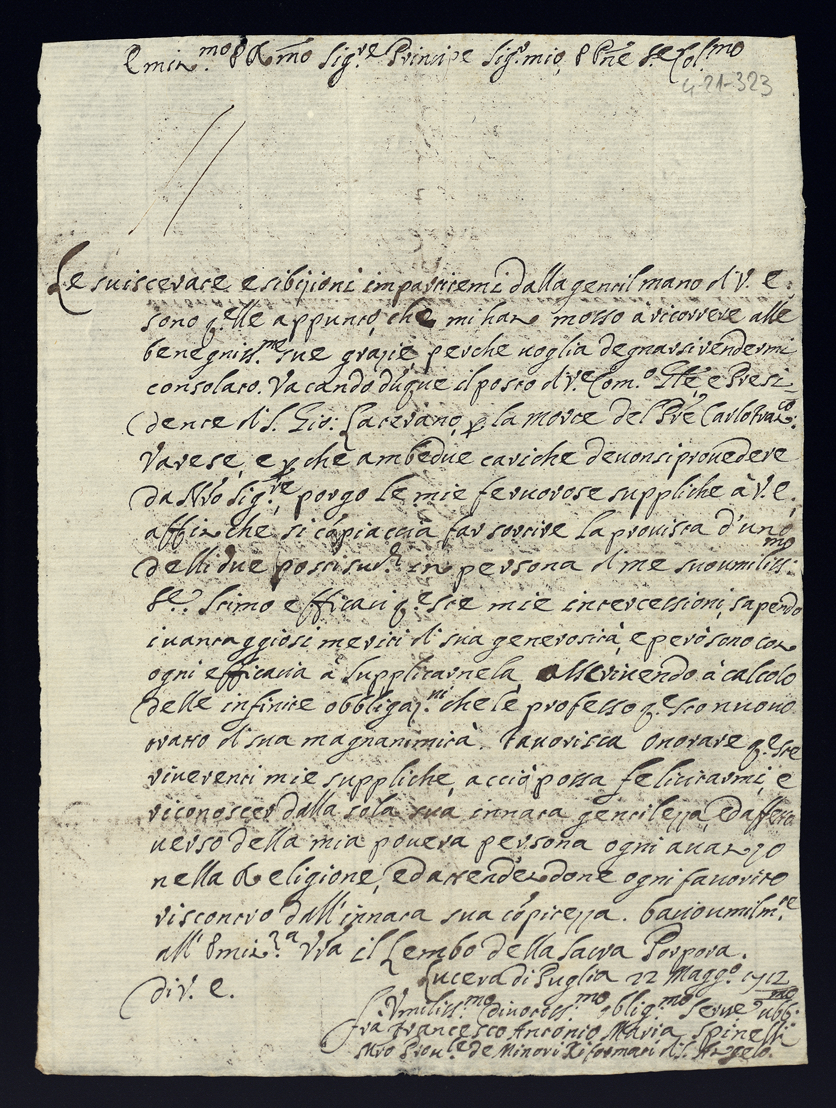 Emin.mo e R.mo Sig.re Principe Sig.r mio, e Pne Se Col.mo
4-21-323
Le suiscerate esibizioni impartitemi dalla gentil mano di V. E.
sono q.lle appunto, che mi han mosso à ricorrere alle
benegniss.me sue grazie, perche uoglia degnarsi rendermi
consolato. Vacando duque il posto di V.e Com.o Gnle, e Presi
dente di S. Gio: Laterano, p la morte del Pre Carlo Fran.co
Varese, e p che ambedue cariche deuonsi prouedere
da Nro Sig.re, porgo le mie feruorose suppliche à V. E.
affinche si cópiaccia far sortire la prouista d'uno
delli due posti sud.i in persona di me suo umiliss.mo
Se.e Stimo efficaci q.ste mie intercessioni, sapendo
i uantaggiosi meriti di sua generosità, e però sono con
ogni efficacia à supplicarnela, ascrivendo à calcolo
delle infinite obbligaz.ni che le professo q.sto nuouo
tratto di sua magnanimità. Fauorisca onorare q.ste
riuerenti mie suppliche, acciò possa felicitarmi, e
riconoscer dalla sola sua innata gentilezza, ed affetto
uerso della mia pouera persona ogni auanzo
nella Religione, ed attendendone ogni fauorito
riscontro dall'innata sua cópitezza. bacio umilm.te
all' Emin.za Vra il Lembo della Sacra Porpora.
Lucera di Puglia 22 Magg.o 1712
Di V. E.
Vmiliss.mo Diuotiss.mo oblig.mo Serue ubb.mo
fra Francesco Antonio Maria Spinelli
Mro Prou.le de Minori Riformati di S. Angelo.